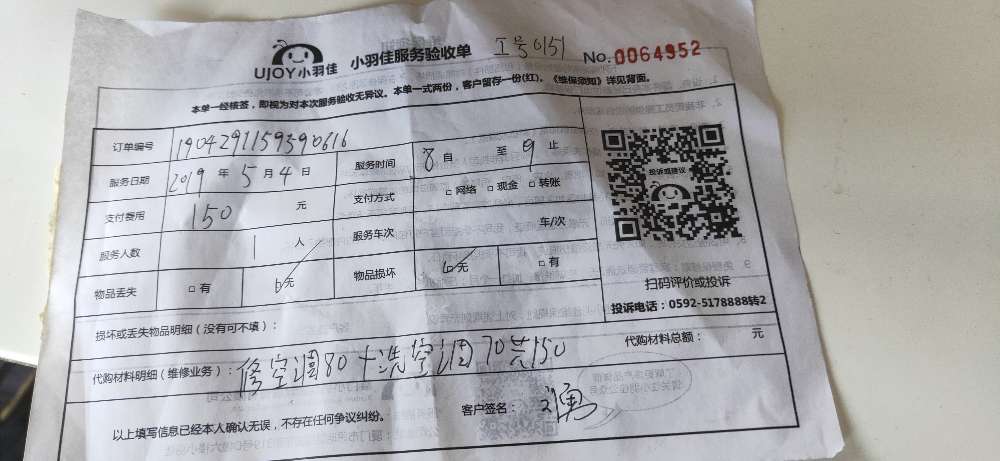 UJOY小羽佳 小羽佳服务验收单 工号0151 No.0064952
本单一经核签，即视为对本次服务验收无异议。本单一式两份，客户留存一份(红)，《维保须知》详见背面。
订单编号 1904291159390616
服务日期 2019年5月4日 服务时间 8自 至 9止
支付费用 150 元 支付方式 □网络 □现金 □转账
服务人数 1 人 服务车次 车/次
物品丢失 □有 无 物品损坏 无 □有
投诉或建议
扫码评价或投诉
投诉电话：0592-5178888转2
损坏或丢失物品明细（没有可不填）：
代购材料明细（维修业务）： 修空调80+洗空调70共150 代购材料总额： 元
以上填写信息已经本人确认无误，不存在任何争议纠纷。 客户签名：